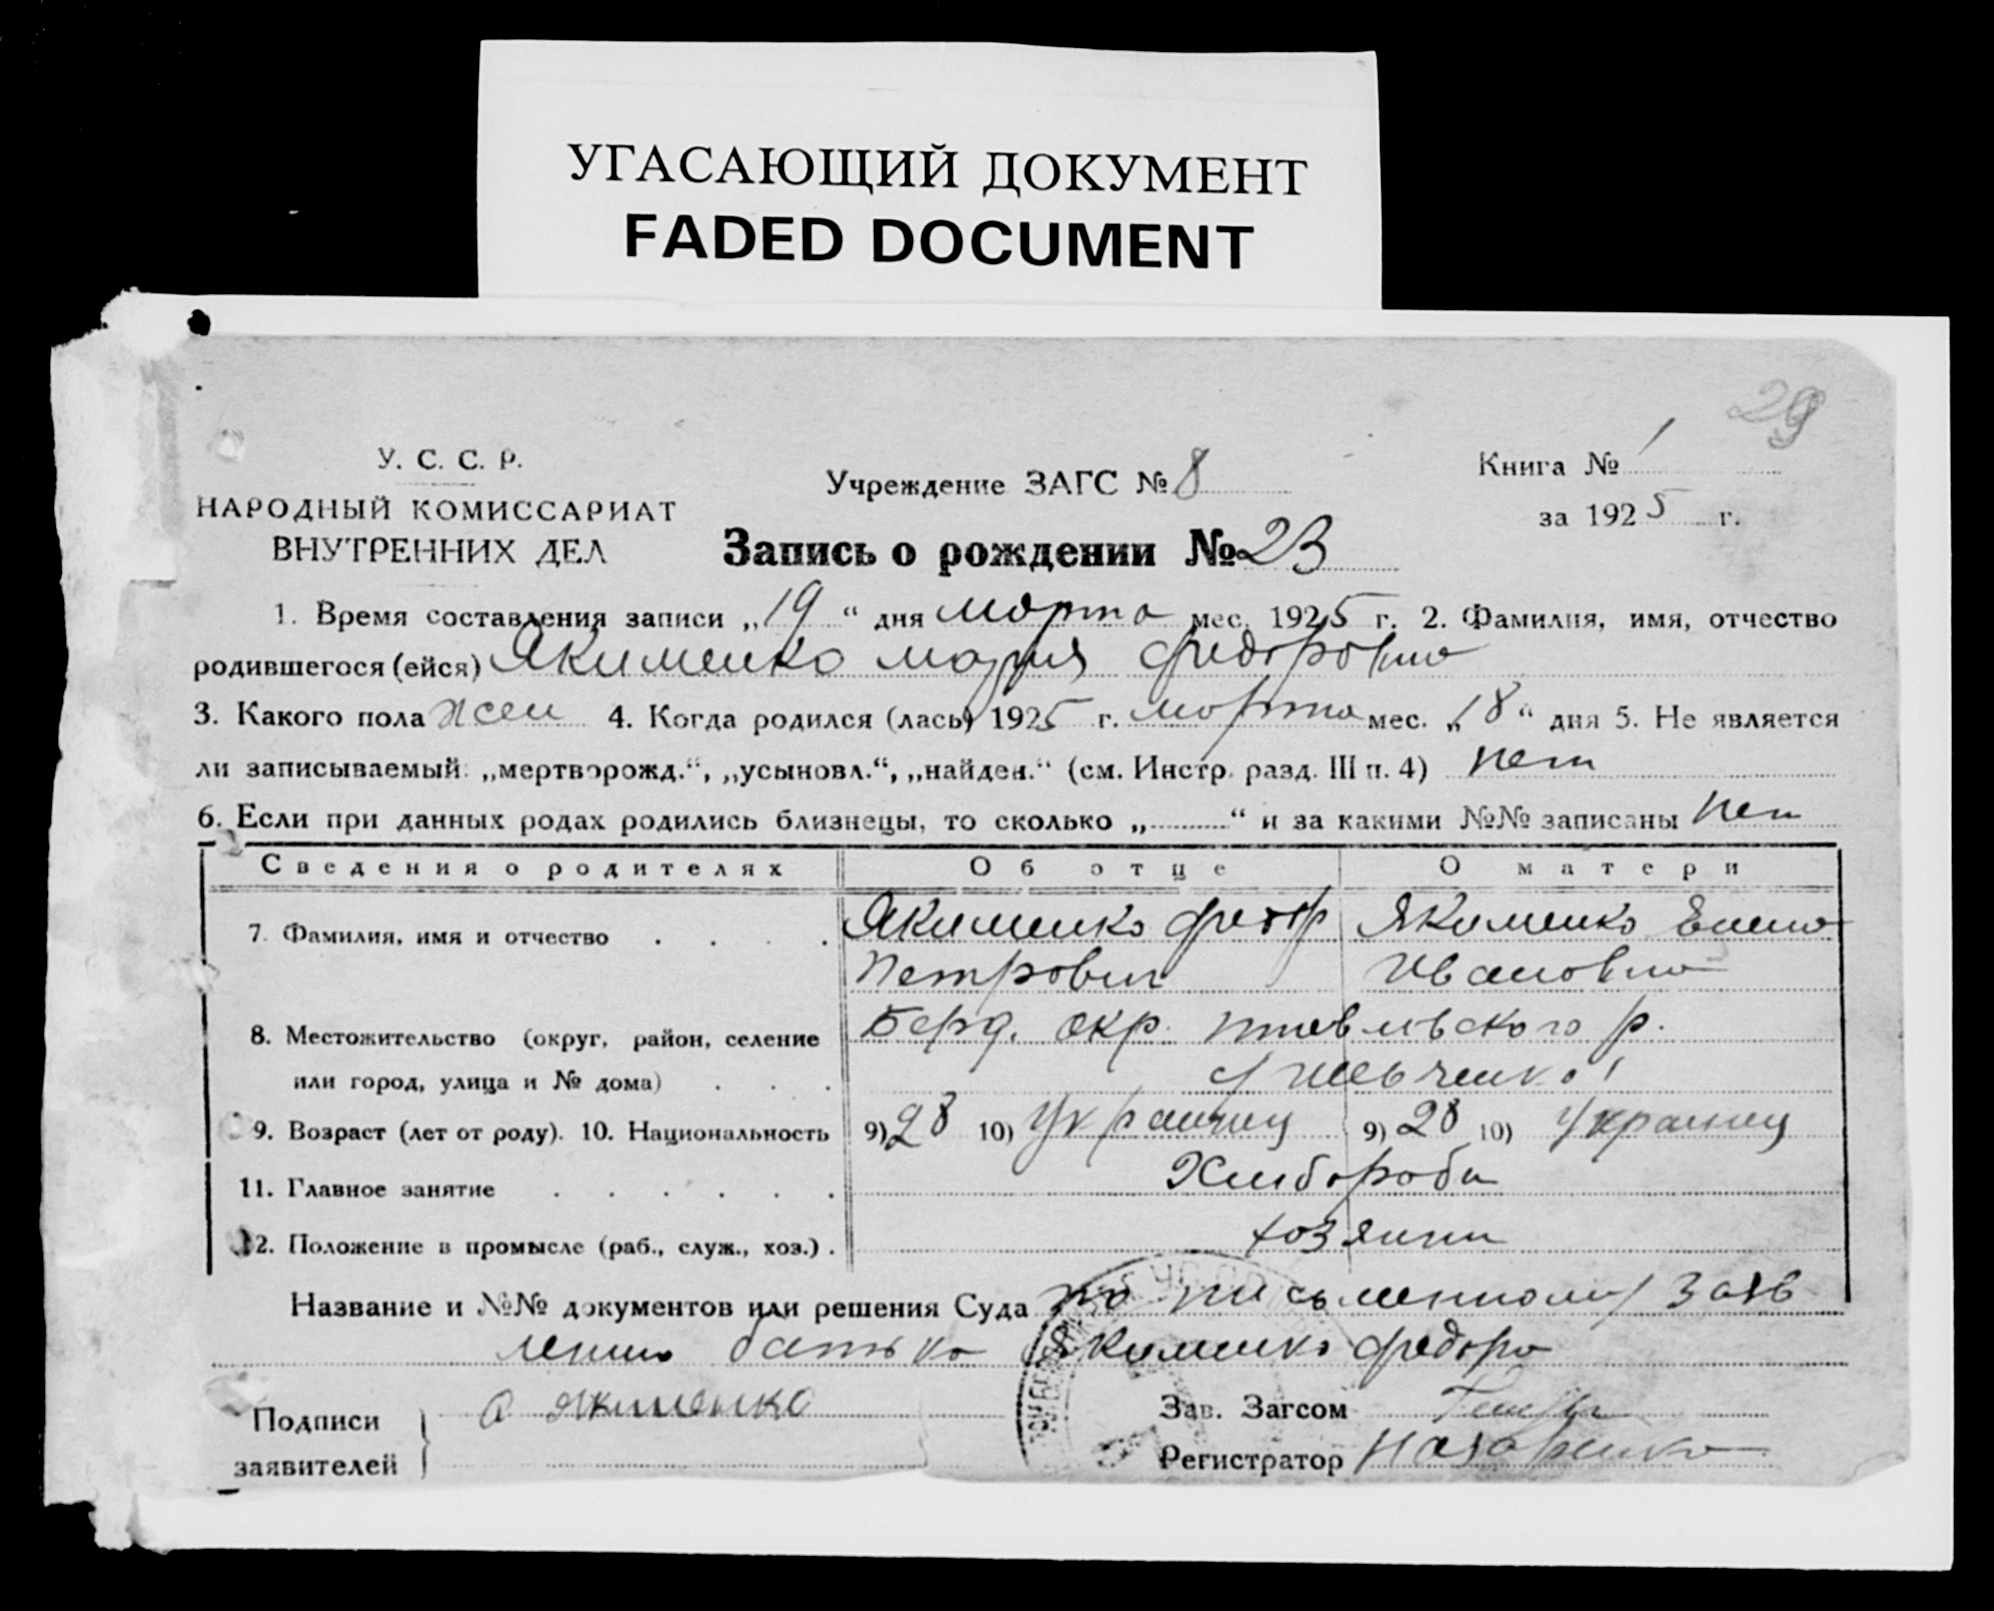 УГАСАЮЩИЙ ДОКУМЕНТ
FADED DOCUMENT
29
У. С. С. Р.
НАРОДНЫЙ КОМИССАРИАТ
ВНУТРЕННИХ ДЕЛ
Учреждение ЗАГС № 8
Книга № 1
за 1925 г.
Запись о рождении № 23
1. Время составления записи „19“ дня марта мес. 1925 г. 2. Фамилия, имя, отчество
родившегося (ейся) Якименко Мария Федоровна
3. Какого пола жен 4. Когда родился (лась) 1925 г. марта мес. „18“ дня 5. Не является
ли записываемый: „мертворожд.“, „усыновл.“, „найден.“ (см. Инстр. разд. III п. 4) нет
6. Если при данных родах родились близнецы, то сколько „ “ и за какими №№ записаны нет
Сведения о родителях Об отце О матери
7. Фамилия, имя и отчество Якименко Федор Якименко Елена
Петрович Ивановна
8. Местожительство (округ, район, селение Берд. окр. р.
или город, улица и № дома)
9. Возраст (лет от роду). 10. Национальность 9) 28 10) Украинец 9) 28 10) Украинец
11. Главное занятие Хлибороби
12. Положение в промысле (раб., служ., хоз.) хозяини
Название и №№ документов или решения Суда по письменному заяв
лению батька Якименко Федора
Подписи Якименко Зав. Загсом
заявителей Регистратор Назаренко